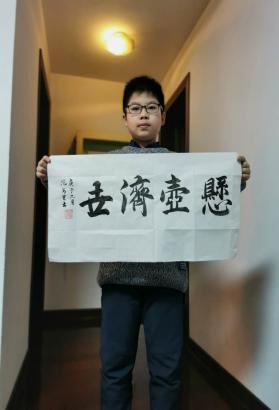 懸壺濟世
庚子六月